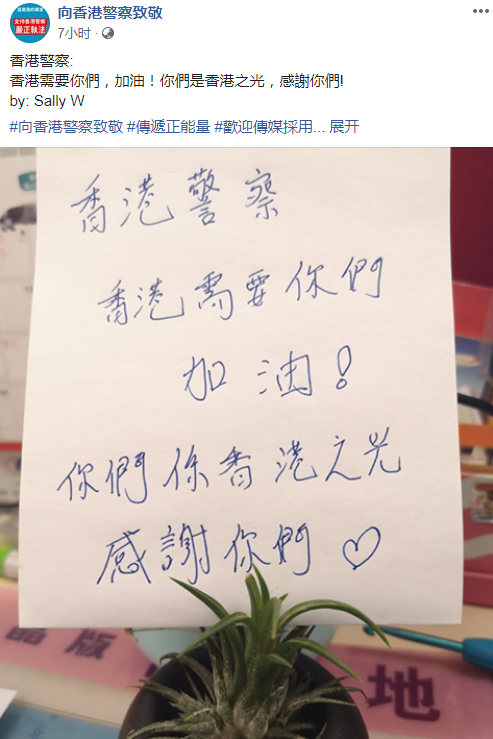 向香港警察致敬
7小时 ·
支持香港警察
嚴正執法
香港警察:
香港需要你們，加油！你們是香港之光，感謝你們!
by: Sally W
#向香港警察致敬 #傳遞正能量 #歡迎傳媒採用... 展开
香港警察
香港需要你們
加油！
你們係香港之光
感謝你們♡
晶版
地